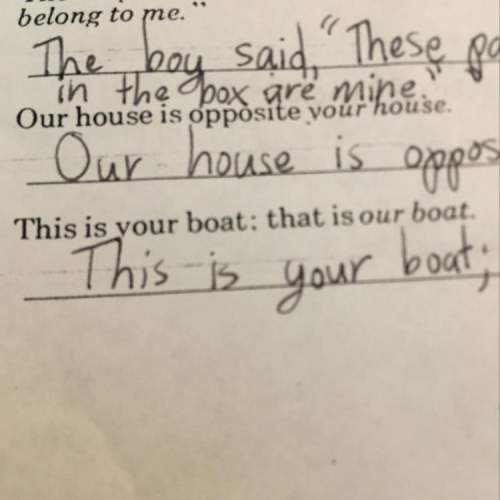 belong to me."
The boy said, "These
in the box are mine."
Our house is opposite your house.
Our house is oppos
This is your boat: that is our boat.
This is your boat;